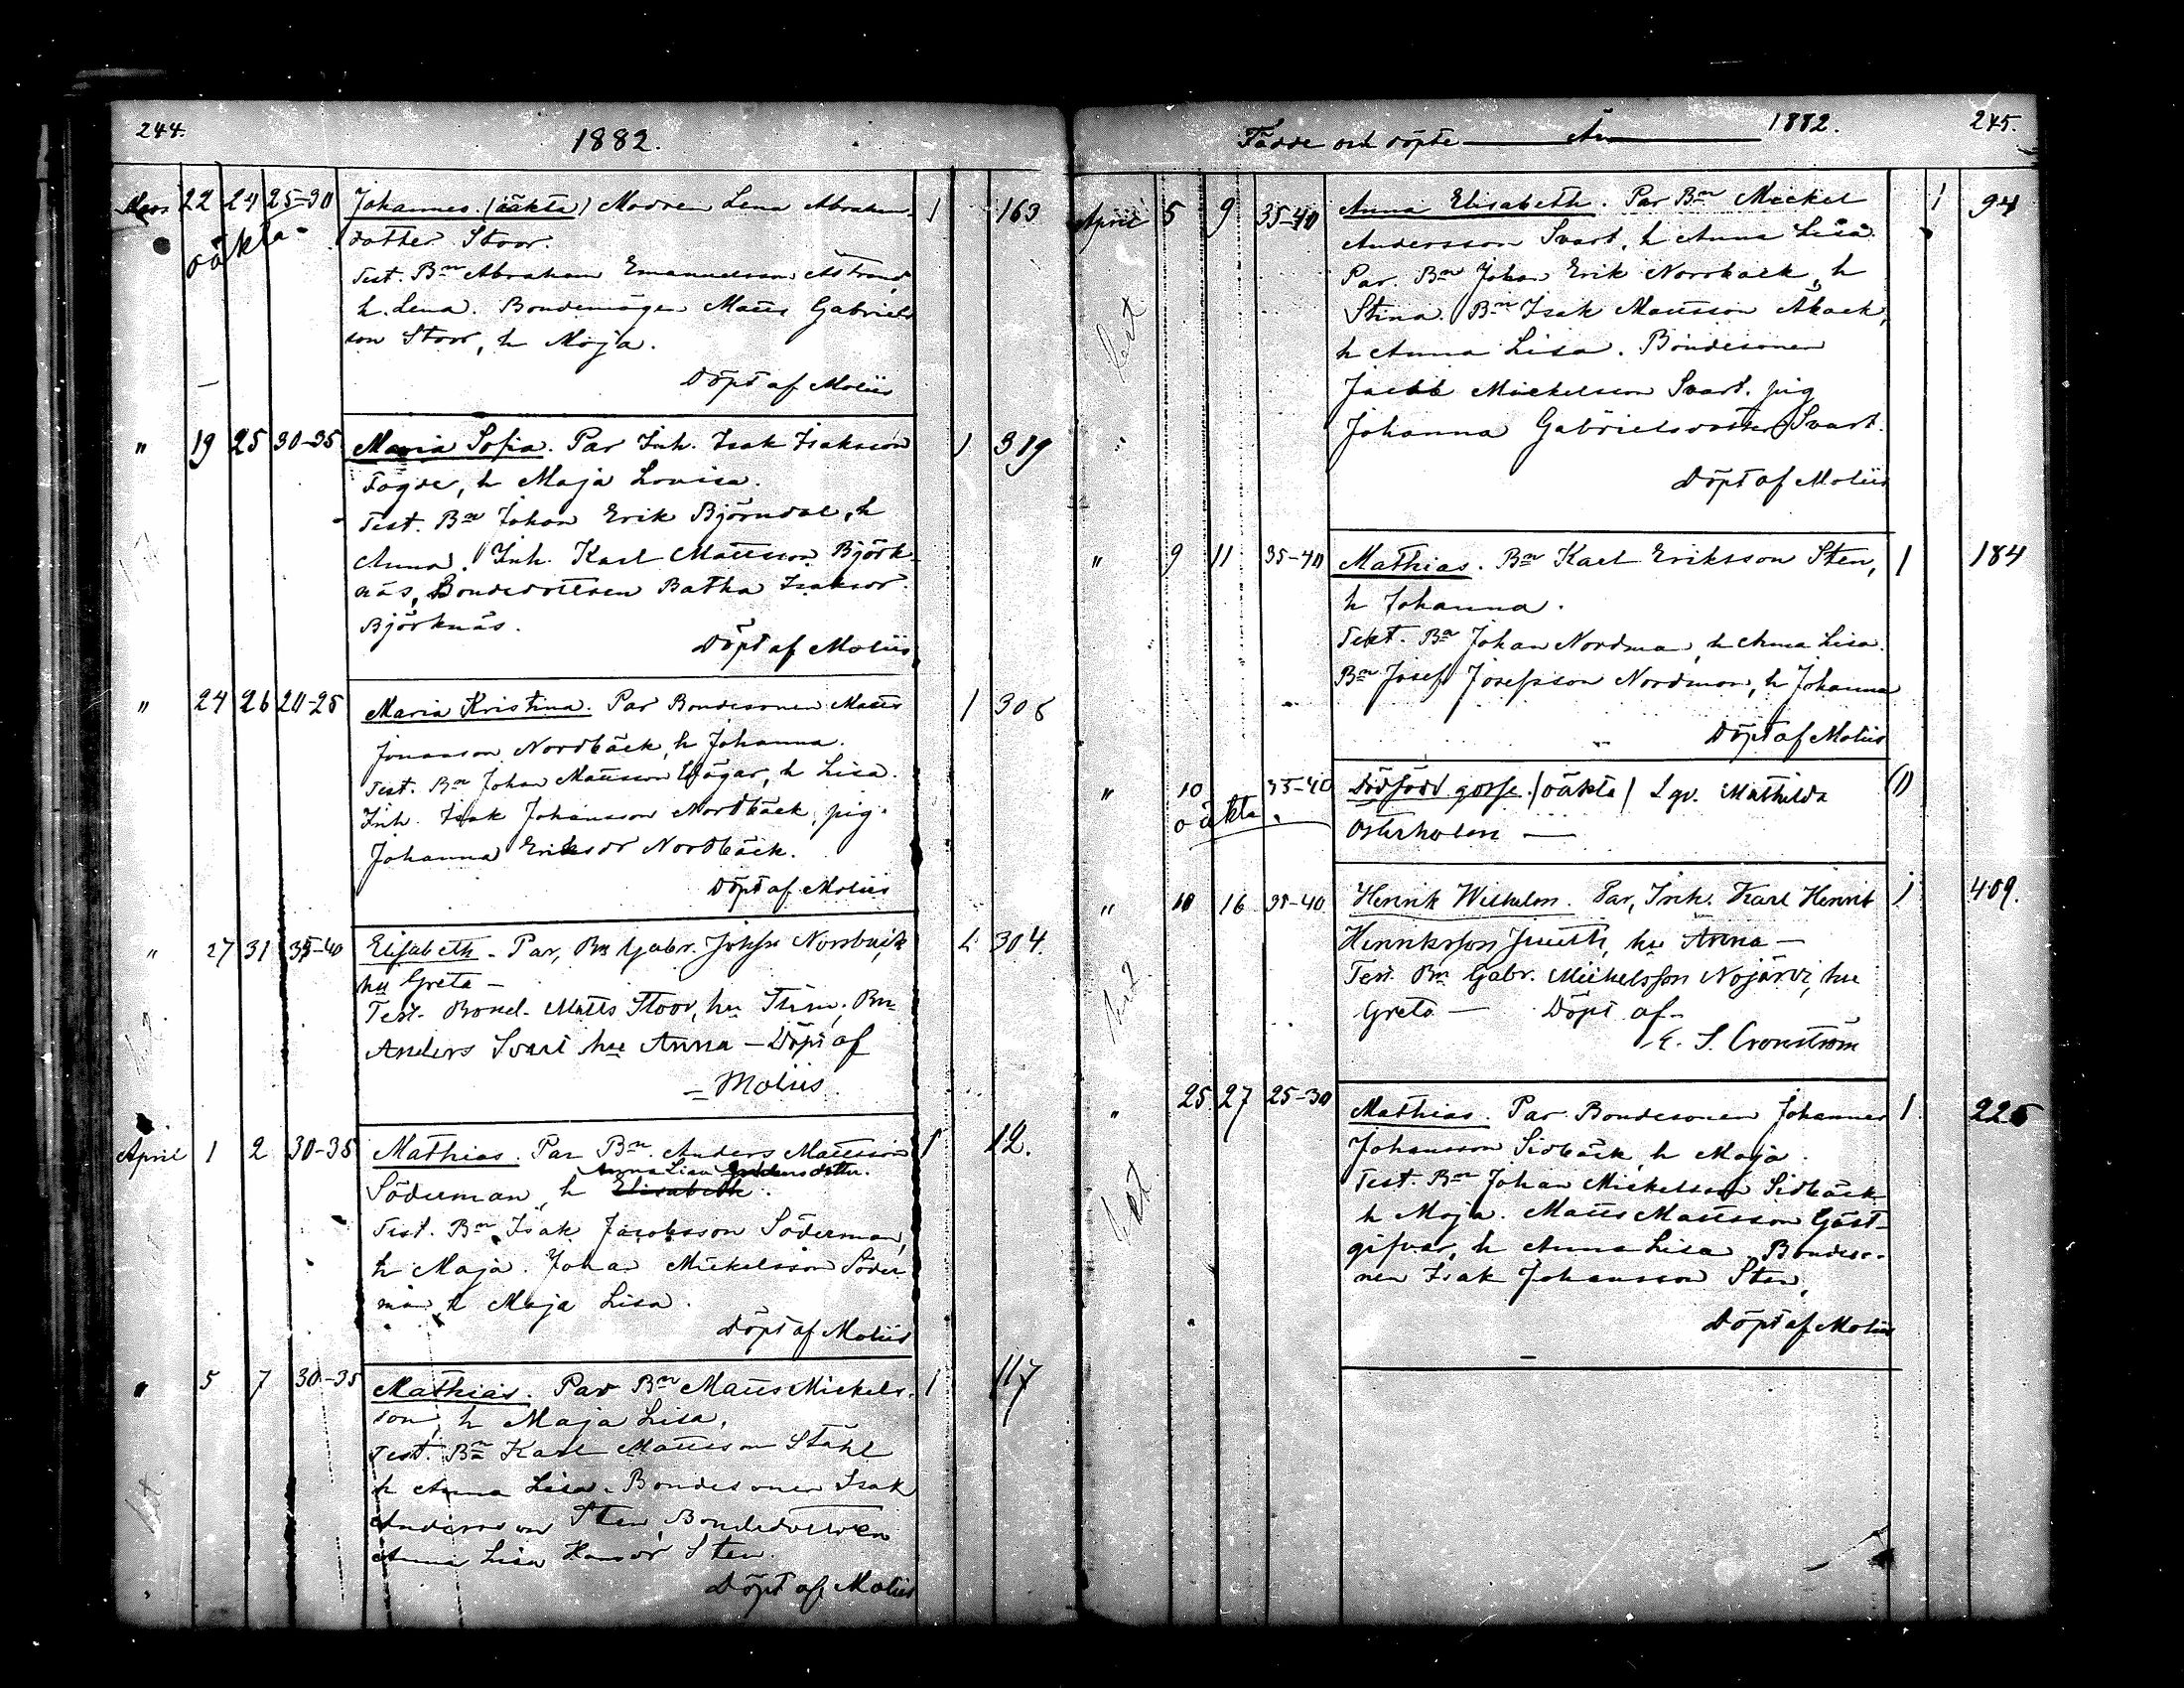 244.
1882.
Mars 22 24 25-30 Johannes. (oäkta) Modren Lena Abraham- 1 163
oäkta dotter Stoor.
Test. Bn Abraham Emanuelsson Åstrand,
h. Lena. Bondemågen Matts Gabriels
son Stoor, h Maja.
Döpt af Moliis
" 19 25 30-35 Maria Sofia. Par Inh. Isak Isaksson 1 319
Togde, h Maja Lovisa.
Test. Bn Johan Erik Björndal, h
Anna. Inh. Karl Mattsson Björk-
näs, Bondedottren Batha Isaksdr
Björknäs.
Döpt af Moliis
" 24 26 20-25 Maria Kristina. Par Bondesonen Matts 1 308
Jonasson Nordbäck, h Johanna.
Test. Bn Johan Mattsson, h Lisa.
Inh. Isak Johansson Nordbäck, pig.
Johanna Eriksdr Nordbäck.
Döpt af Moliis
" 27 31 35-40 Elisabeth. Par, Bn Gabr. Norrback, 1 304.
hu Greta –
Test. Bond. Matts Stoor, hu Stina, Bn
Anders Svart hu Anna – Döpt af
– Moliis
April 1 2 30-35 Mathias. Par Bn. Anders Mattsson 1 12.
Anna Lisa Andersdotter.
Söderman, h Elisabeth.
Test. Bn Isak Jacobsson Söderman,
h Maja. Johan Mickelsson Söder
man h Maja Lisa.
Döpt af Moliis
" 5 7 30-35 Mathias. Par Bn Matts Mickels- 1 117
son, h Maja Lisa,
Test. Bn Karl Mattsson Ståhl
h Anna Lisa. Bondesonen Isak
Andersson Sten, Bondedottren
Anna Lisa Hansdr Sten.
Döpt af Moliis
Födde och döpte — År — 1882. 245.
April 5 9 35-40 Anna Elisabeth. Par Bn Mickel 1 94
Andersson Svart, h Anna Lisa
Par. Bn Johan Erik Norrback, h
Stina. Bn Isak Mattsson Åback,
h Anna Lisa. Bondesonen
Jacob Mickelsson Svart. pig
Johanna Gabrielsdotter Svart.
Döpt af Moliis
" 9 11 35-40 Mathias. Bn Karl Eriksson Sten, 1 184
h Johanna.
Test. Bn Johan Nordman, h Anna Lisa.
Bn Josef Josefsson Nordman, h Johanna
Döpt af Moliis
" 10 35-40 Dödfödd gosse. (oäkta) Lgv. Mathilda (1)
oäkta. Österholm —
" 10 16 35-40 Henrik Wilhelm. Par, Inh. Karl Henrik 1 409.
Henriksson, hu Anna –
Test. Bn Gabr. Mickelsson Nojärvi, hu
Greta — Döpt af –
E. S. Cronström
" 25 27 25-30 Mathias. Par Bondesonen Johannes 1 225
Johansson Sidbäck, h Maja.
Test. Bn Johan Mickelsson Sidbäck
h Maja. Matts Mattsson Gäst-
gifvar, h Anna Lisa. Bondeso-
nen Isak Johansson Sten,
Döpt af Moliis